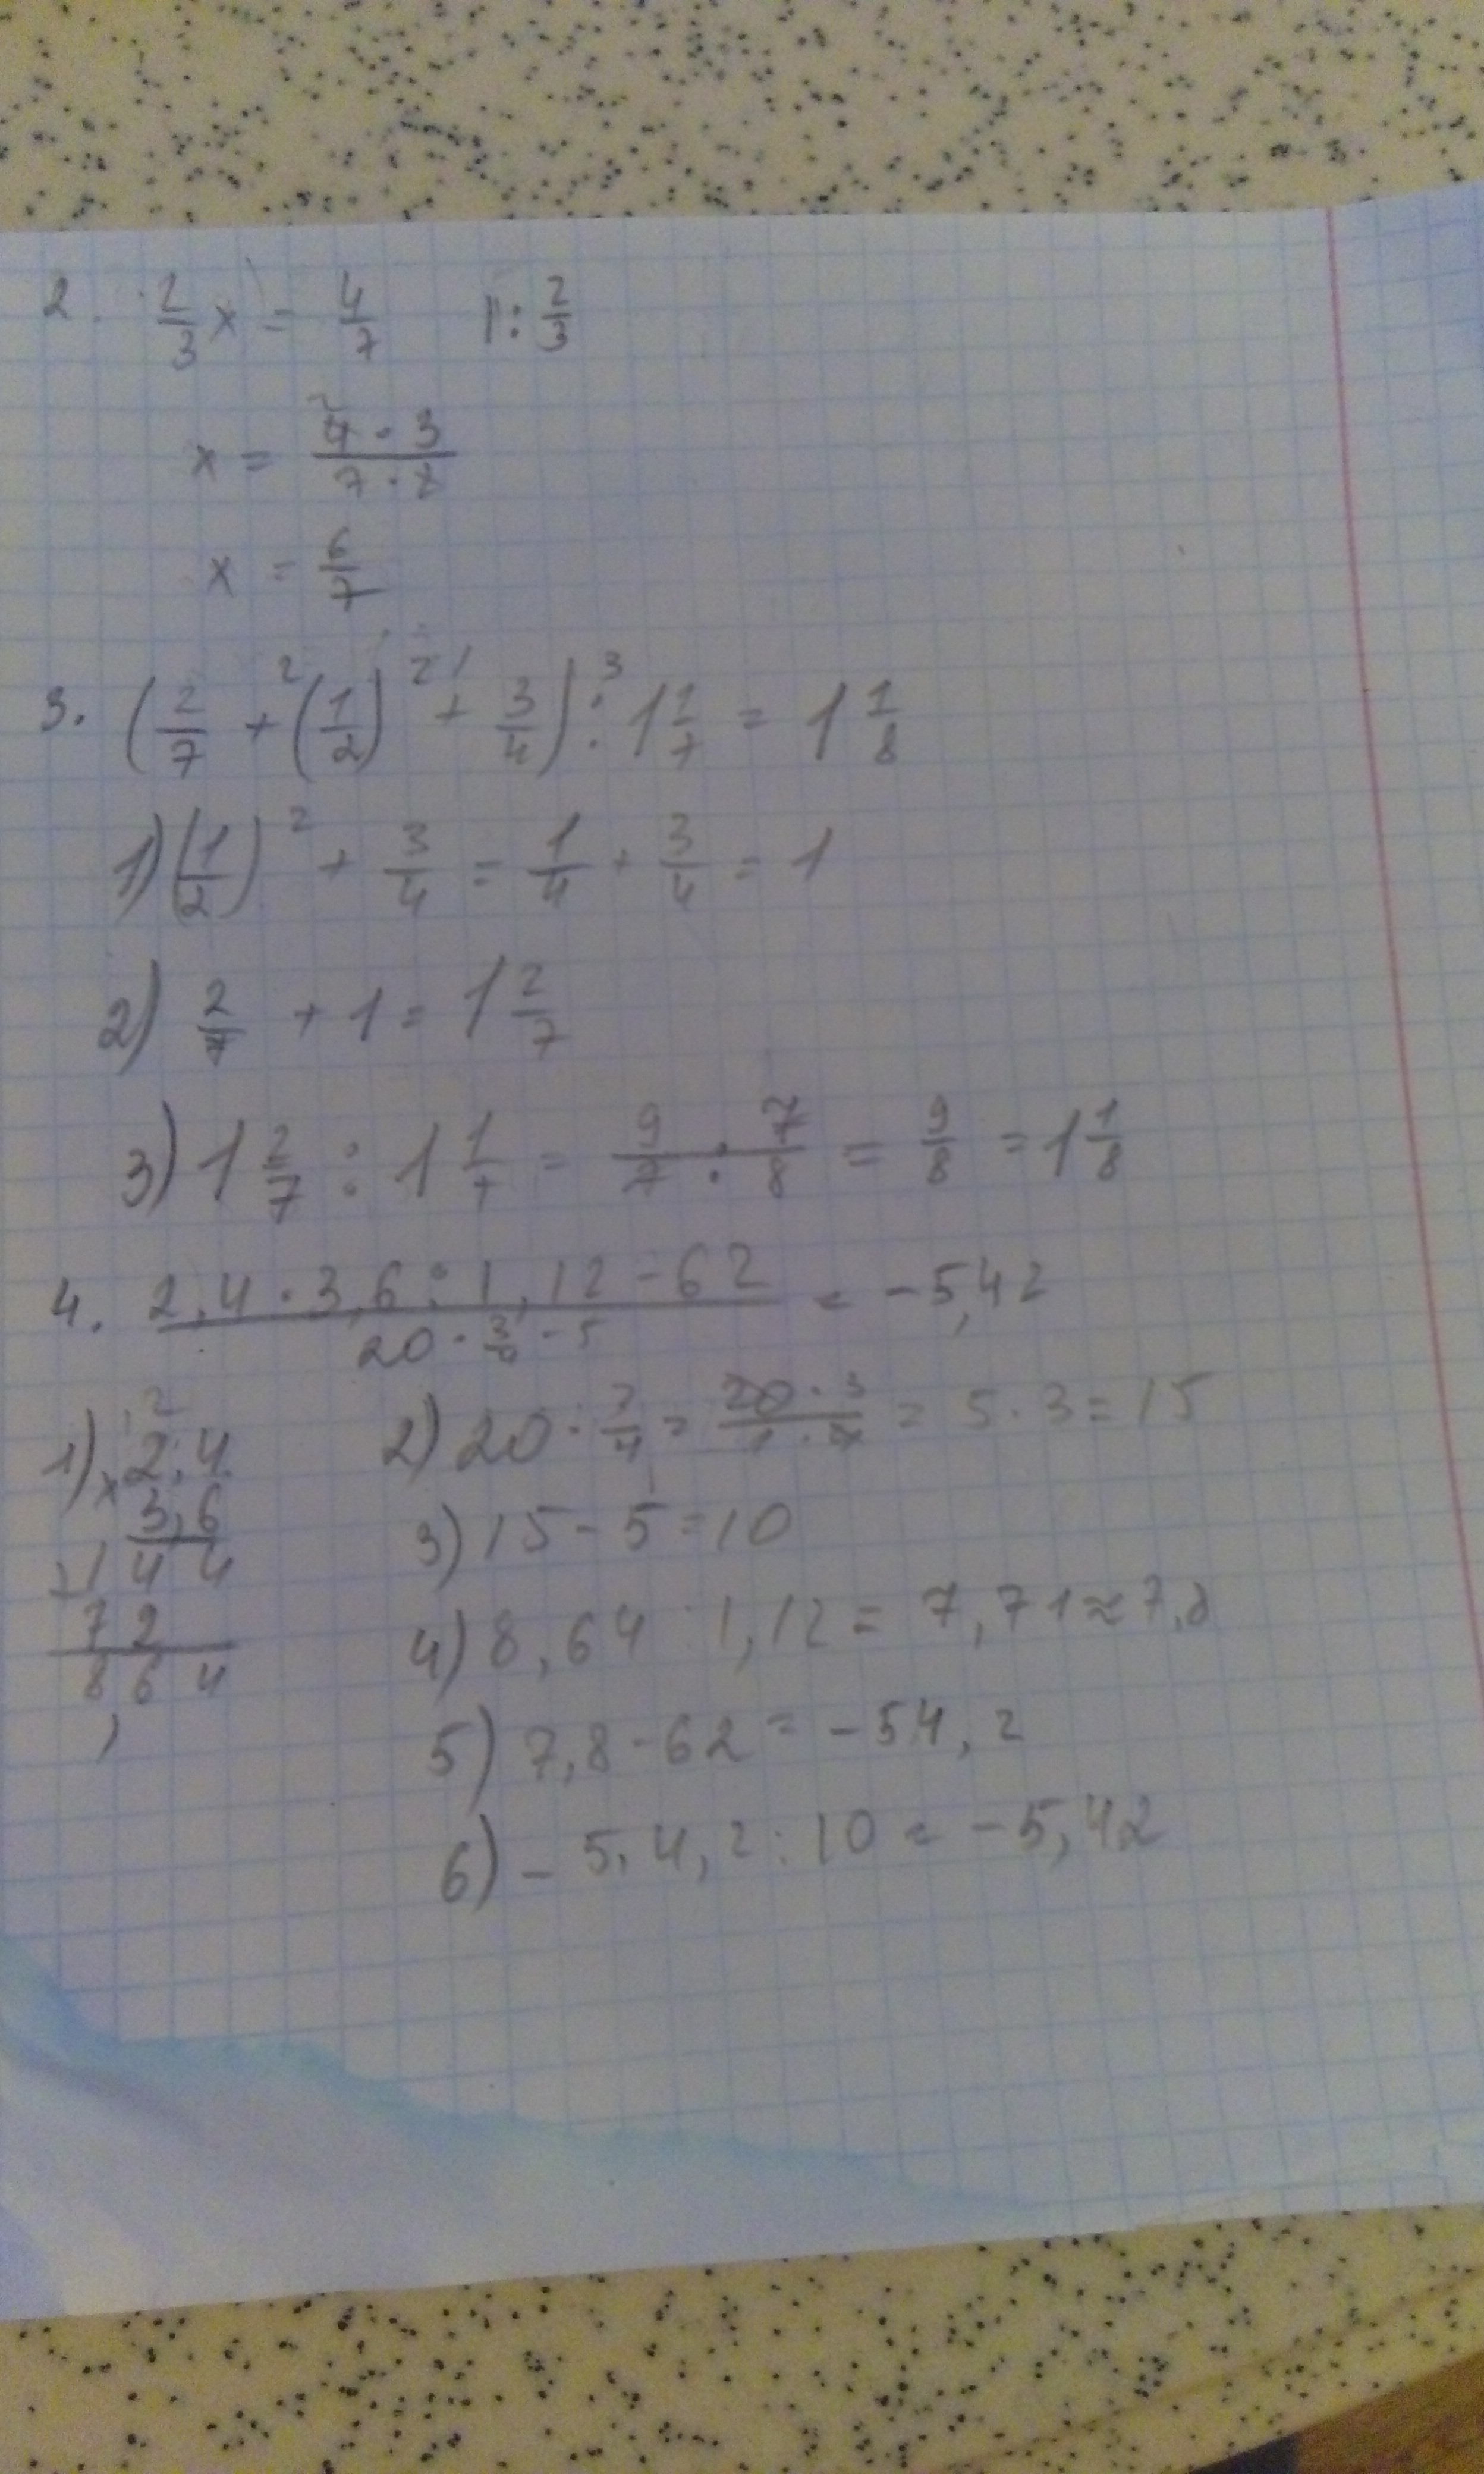 2. 2/3 x = 4/7 |: 2/3
x = 4·3/7·2
x = 6/7
3. (2/7 + (1/2)² + 3/4) : 1 1/7 = 1 1/8
1) (1/2)² + 3/4 = 1/4 + 3/4 = 1
2) 2/7 + 1 = 1 2/7
3) 1 2/7 : 1 1/7 = 9/7 : 7/8 = 9/8 = 1 1/8
4. 2,4·3,6:1,12-62 / 20·3/4-5 = -5,42
1) 2,4
×3,6
+144
72
864
,
2) 20·3/4 = 20·3/1·4 = 5·3=15
3) 15-5=10
4) 8,64:1,12=7,71≈7,8
5) 7,8-62=-54,2
6) -54,2:10=-5,42